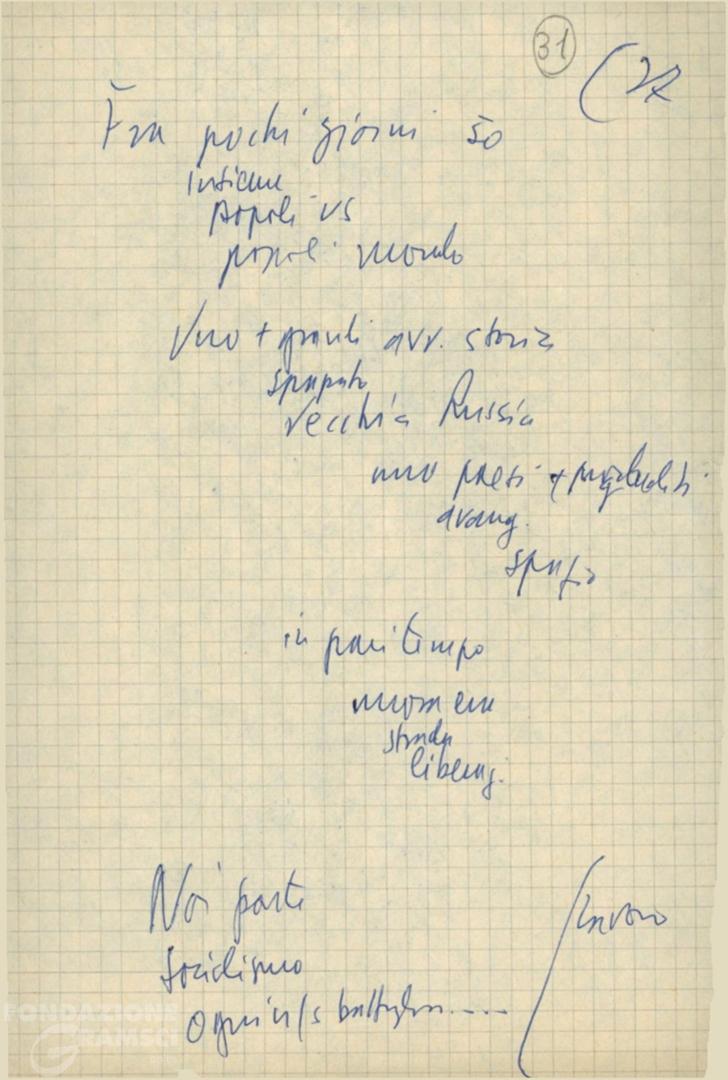 31
(27
Fra pochi giorni 50
insieme
popoli US
popoli mondo
Uno + grandi avv. storia
spaputo
Vecchia Russia
uno paesi +
avang.
spazio
in pari tempo
nuova era
strada
liberaz.
Noi parte
socialismo
ogni n/s battaglia.....
lavoro
FONDAZIONE
GRAMSCI